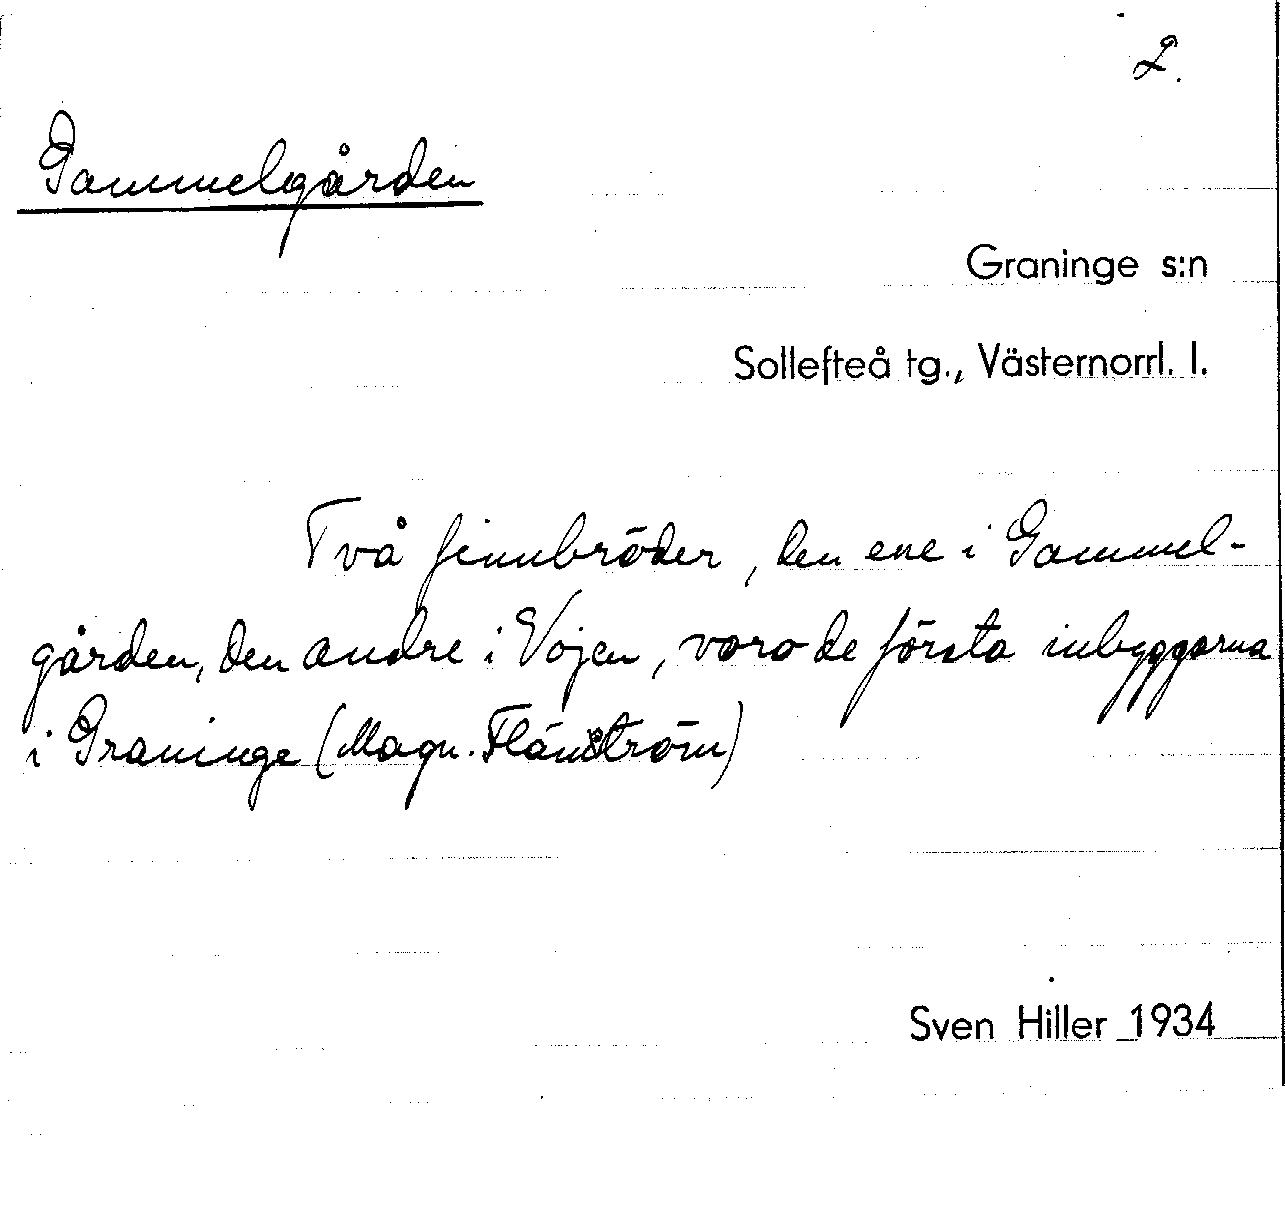 2.
Gammelgården
Graninge s:n
Sollefteå tg., Västernorrl. l.
Två finnbröder, den ene i Gammel-
gården, den andre i Vojen, voro de första inbyggarna
i Graninge (Magn. Flänström)
Sven Hiller 1934